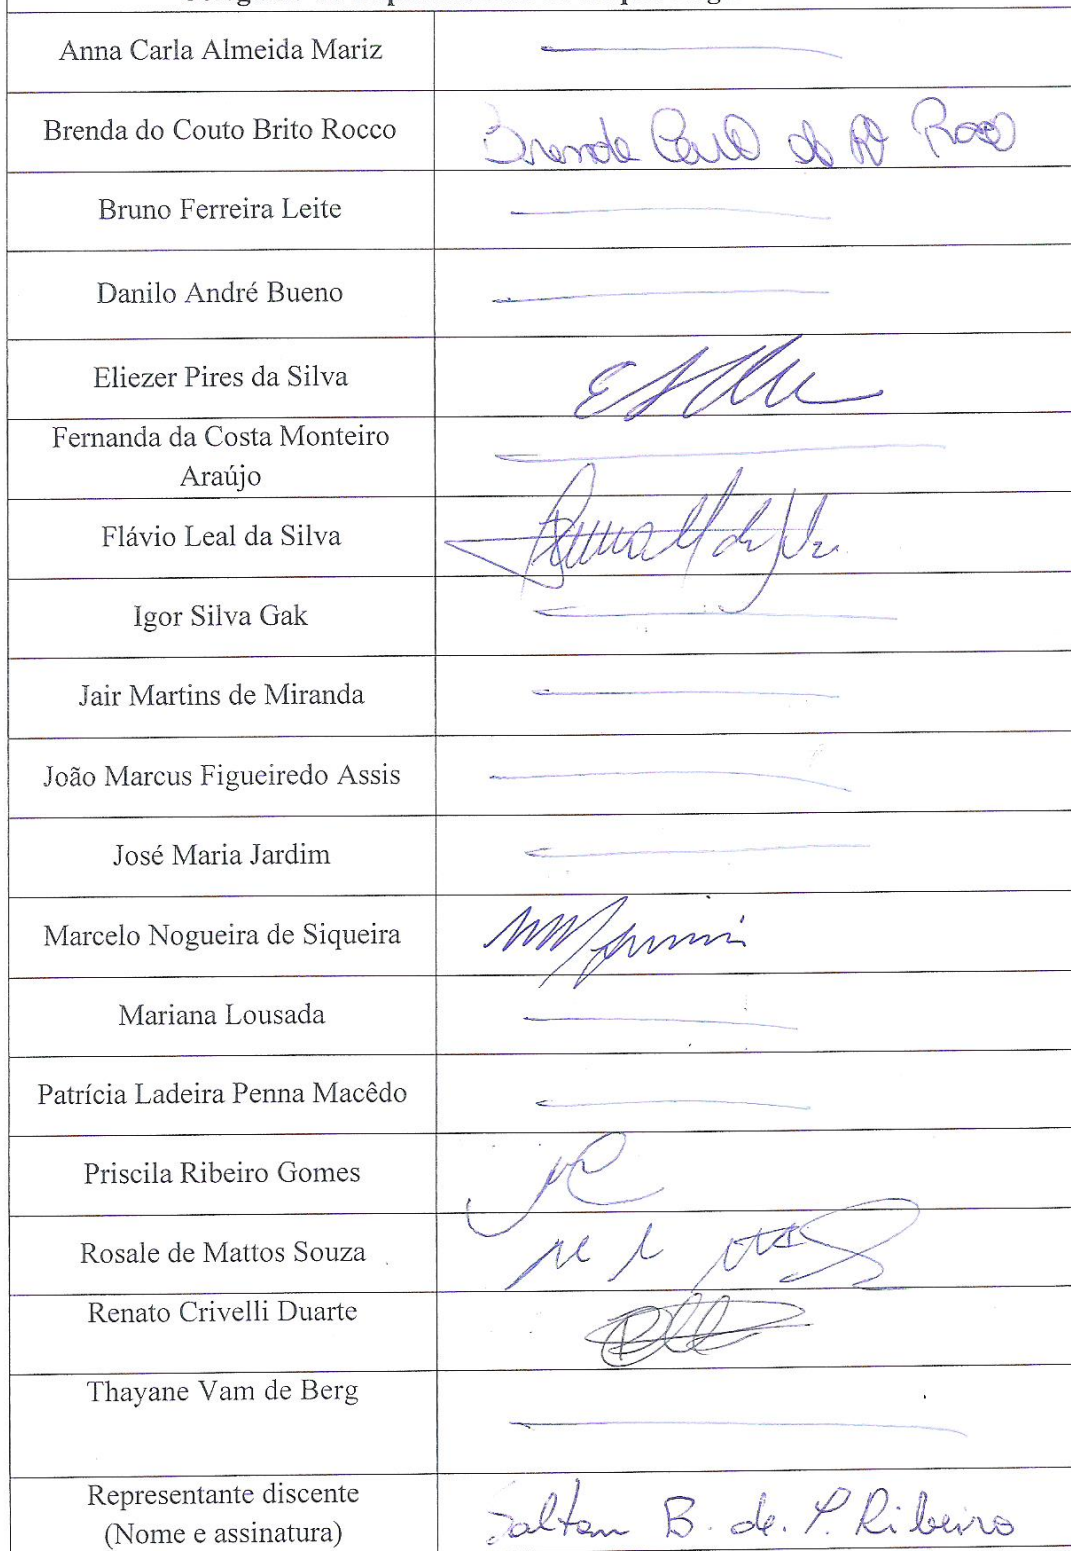 Anna Carla Almeida Mariz
Brenda do Couto Brito Rocco
Brenda Couto do Rocco
Bruno Ferreira Leite
Danilo André Bueno
Eliezer Pires da Silva
Fernanda da Costa Monteiro
Araújo
Flávio Leal da Silva
Igor Silva Gak
Jair Martins de Miranda
João Marcus Figueiredo Assis
José Maria Jardim
Marcelo Nogueira de Siqueira
Mariana Lousada
Patrícia Ladeira Penna Macêdo
Priscila Ribeiro Gomes
Rosale de Mattos Souza
Renato Crivelli Duarte
Thayane Vam de Berg
Representante discente
(Nome e assinatura)
B. de. P. Ribeiro